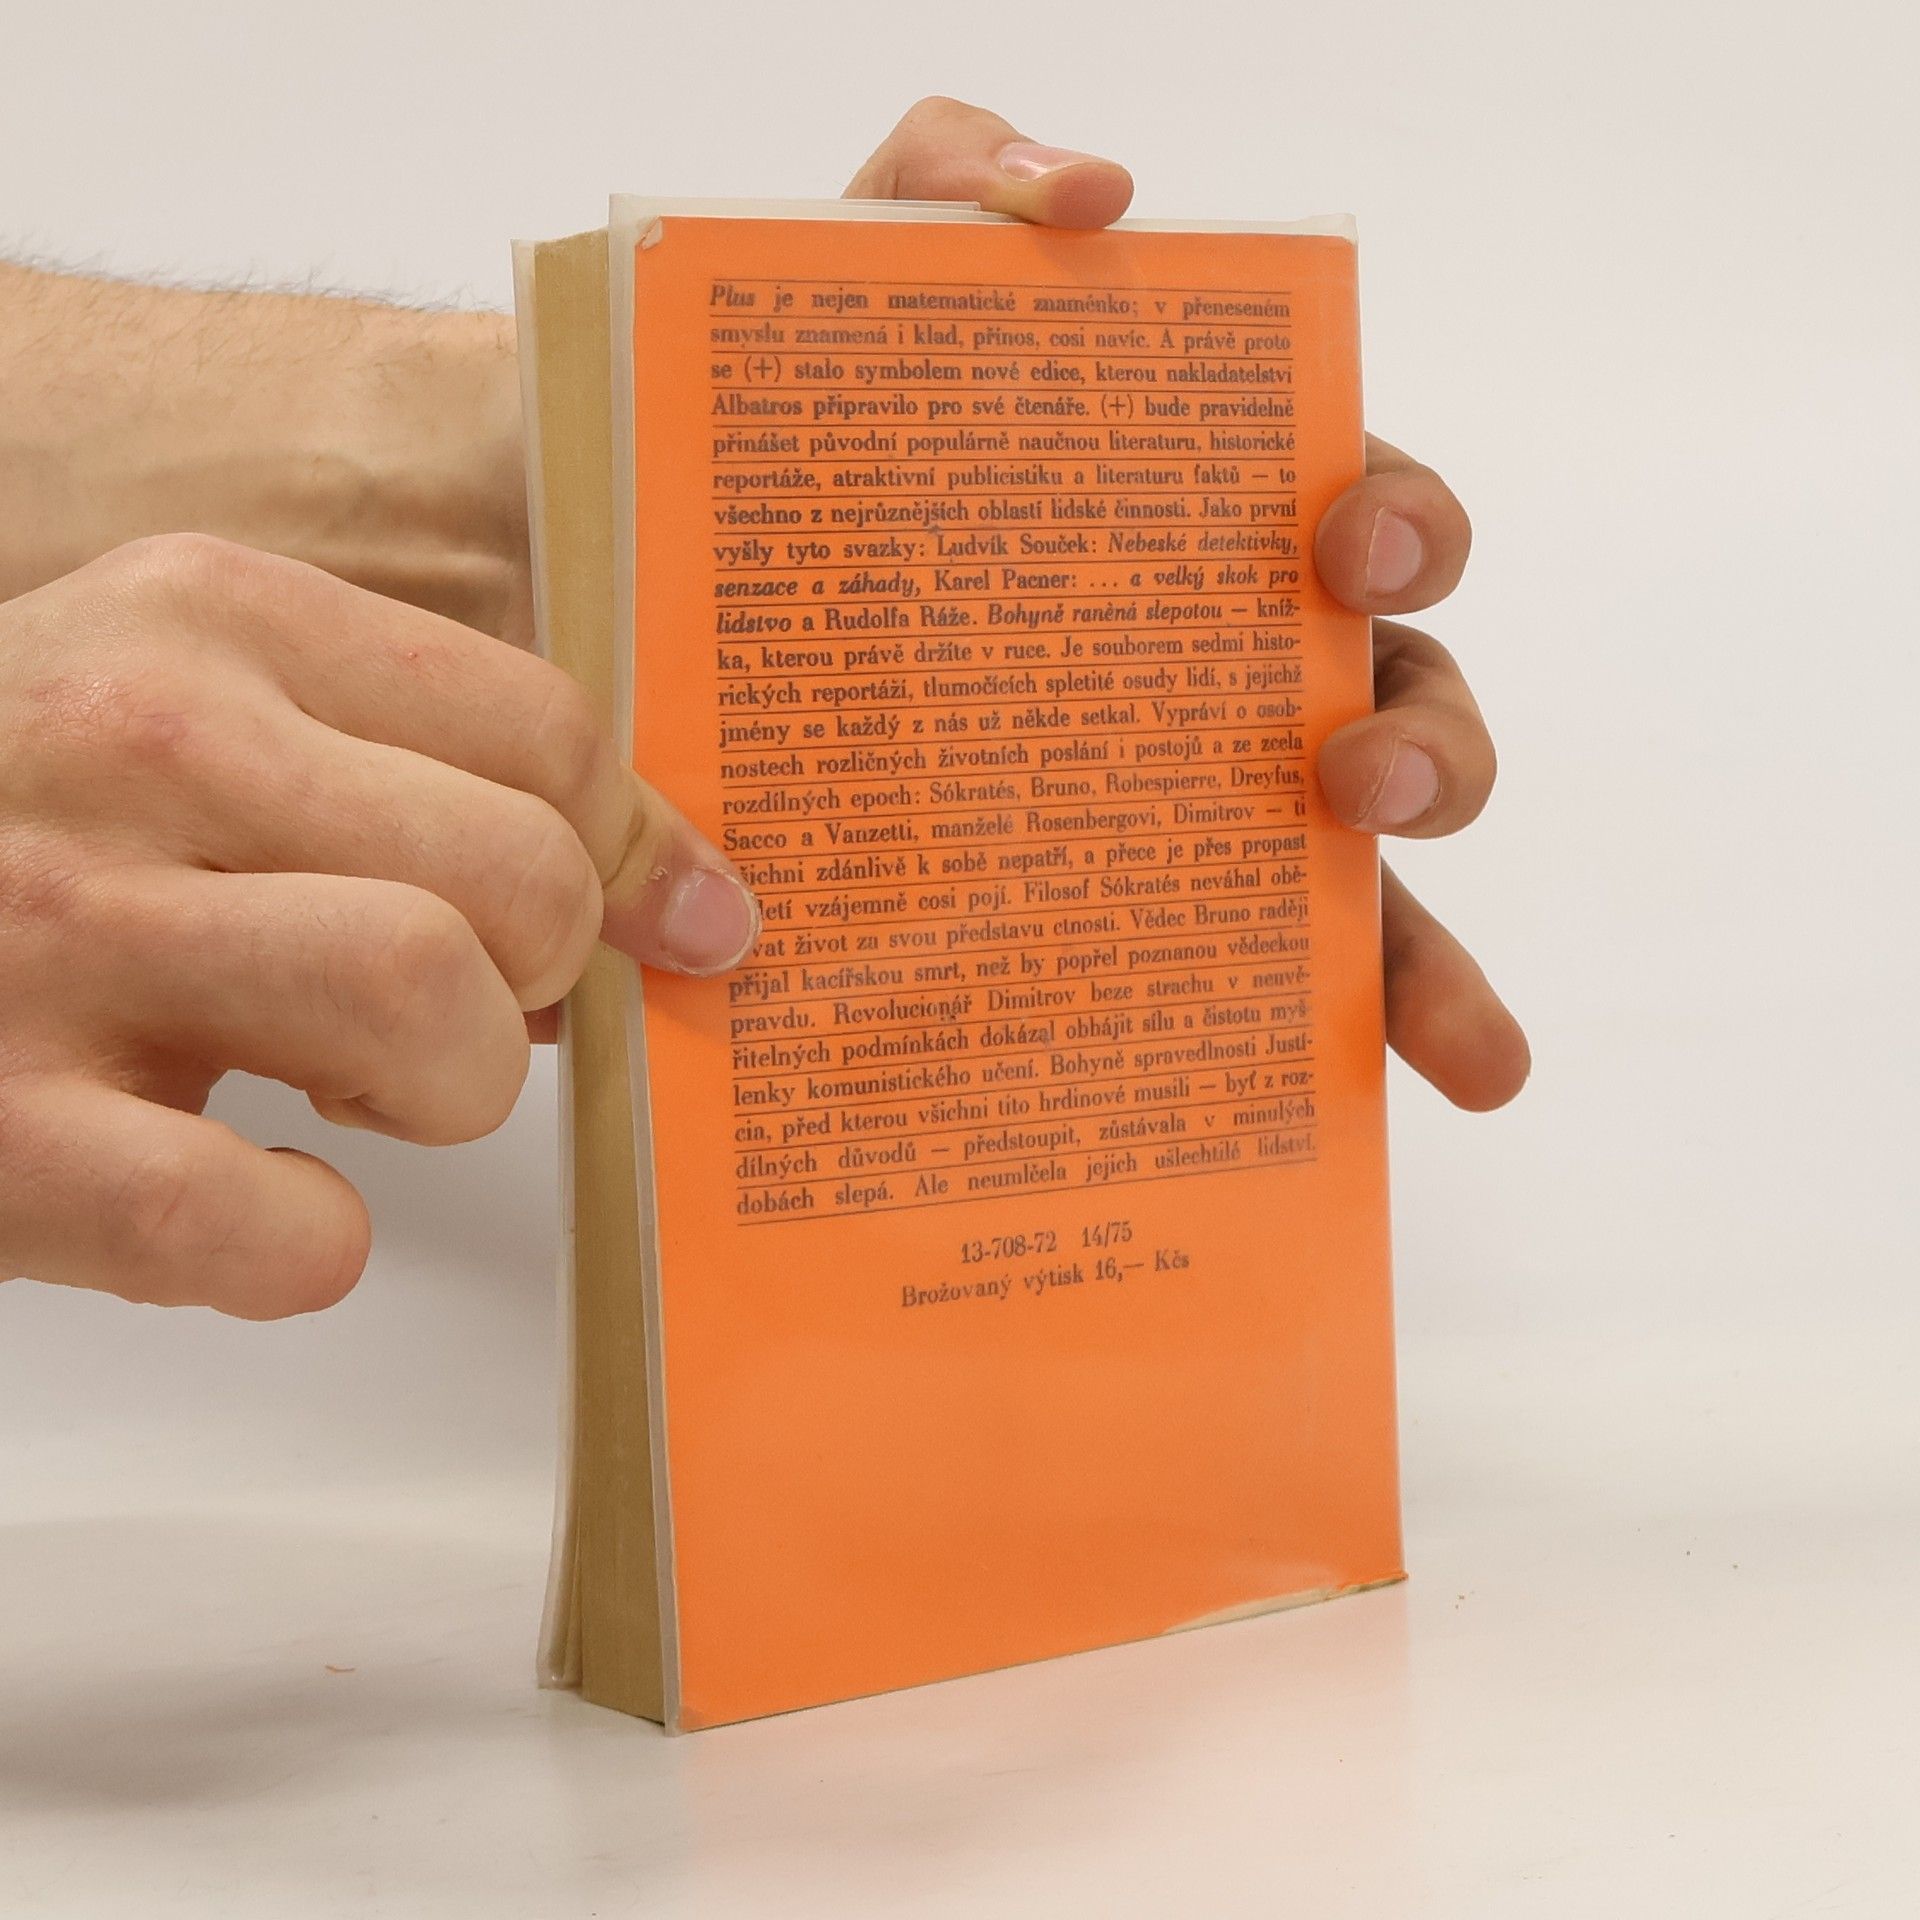 Plus je nejen matematické znaménko; v přeneseném
smyslu znamená i klad, přínos, cosi navíc. A právě proto
se (+) stalo symbolem nové edice, kterou nakladatelství
Albatros připravilo pro své čtenáře. (+) bude pravidelně
přinášet původní populárně naučnou literaturu, historické
reportáže, atraktivní publicistiku a literaturu faktů — to
všechno z nejrůznějších oblastí lidské činnosti. Jako první
vyšly tyto svazky: Ludvík Souček: Nebeské detektivky,
senzace a záhady, Karel Pacner: ... a velký skok pro
lidstvo a Rudolfa Ráže. Bohyně raněná slepotou — kníž-
ka, kterou právě držíte v ruce. Je souborem sedmi histo-
rických reportáží, tlumočících spletité osudy lidí, s jejichž
jmény se každý z nás už někde setkal. Vypráví o osob-
nostech rozličných životních poslání i postojů a ze zcela
rozdílných epoch: Sókratés, Bruno, Robespierre, Dreyfus,
Sacco a Vanzetti, manželé Rosenbergovi, Dimitrov — ti
šichni zdánlivě k sobě nepatří, a přece je přes propast
letí vzájemně cosi pojí. Filosof Sókratés neváhal obě-
vat život za svou představu ctnosti. Vědec Bruno raději
přijal kacířskou smrt, než by popřel poznanou vědeckou
pravdu. Revolucionář Dimitrov beze strachu v neuvě-
řitelných podmínkách dokázal obhájit sílu a čistotu myš-
lenky komunistického učení. Bohyně spravedlnosti Justí-
cin, před kterou všichni tito hrdinové musili — byť z roz-
dílných důvodů — předstoupit, zůstávala v minulých
dobách slepá. Ale neumlčela jejich ušlechtilé lidství.
13-708-72 14/75
Brožovaný výtisk 16,— Kčs